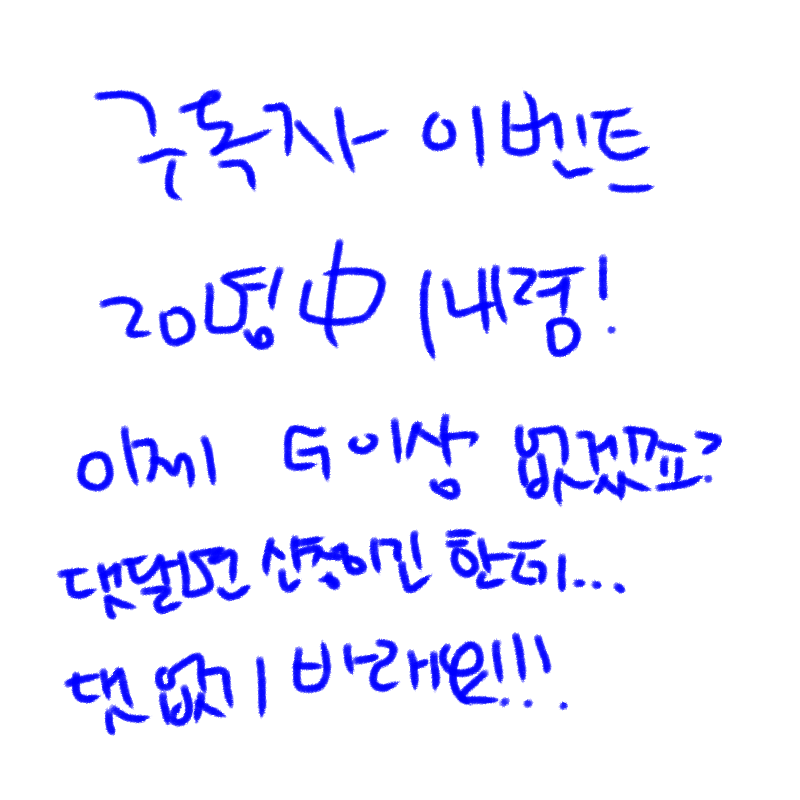 구독자 이벤트
20명 中 1내령!
이제 더이상 없겠죠?
댓달면 신청이긴 한데...
댓 없기 바래요!!!...